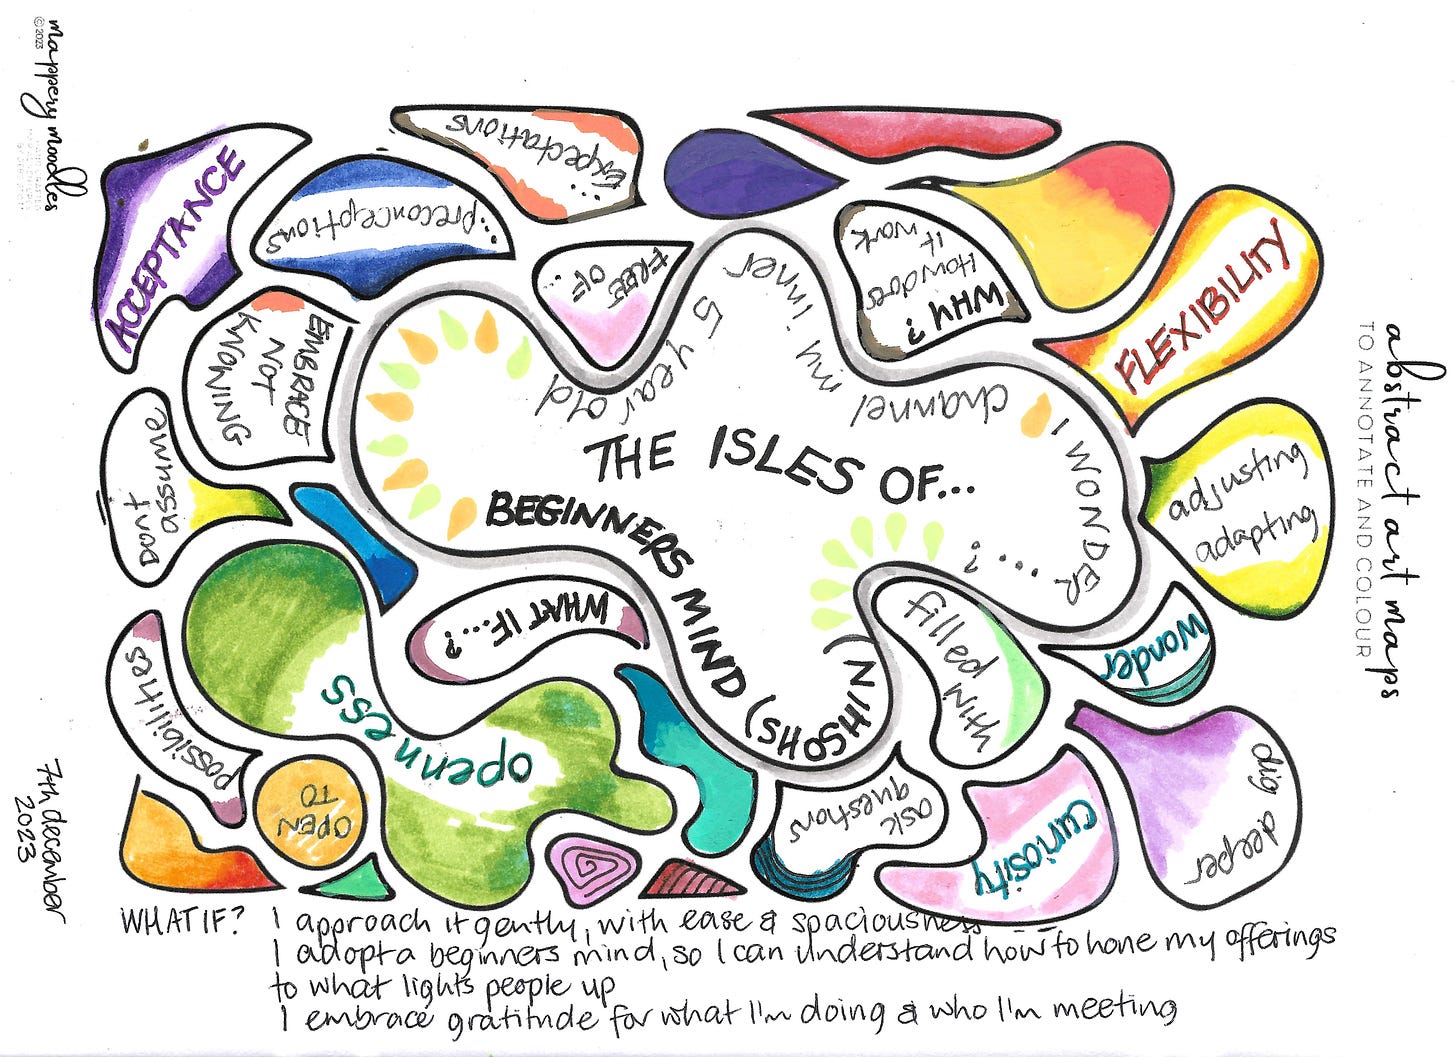 mappery moodles
©2023
abstract art maps
TO ANNOTATE AND COLOUR
ACCEPTANCE
Expectations
...
...preconceptions
FREE
OF...
WHY?
How does
it work
FLEXIBILITY
EMBRACE
NOT
KNOWING
inner
5 year old
channel
my
I WONDER
...?
THE ISLES OF...
BEGINNERS MIND (SHOSHIN)
adjusting
adapting
Dont
assume
WHAT IF...?
filled with
Wonder
possibilities
openness
OPEN
TO
ask
questions
curiosity
dig deeper
7th december
2023
WHAT IF? I approach it gently, with ease & spaciousness
I adopt a beginners mind, so I can understand how to hone my offerings
to what lights people up
I embrace gratitude for what I'm doing & who I'm meeting